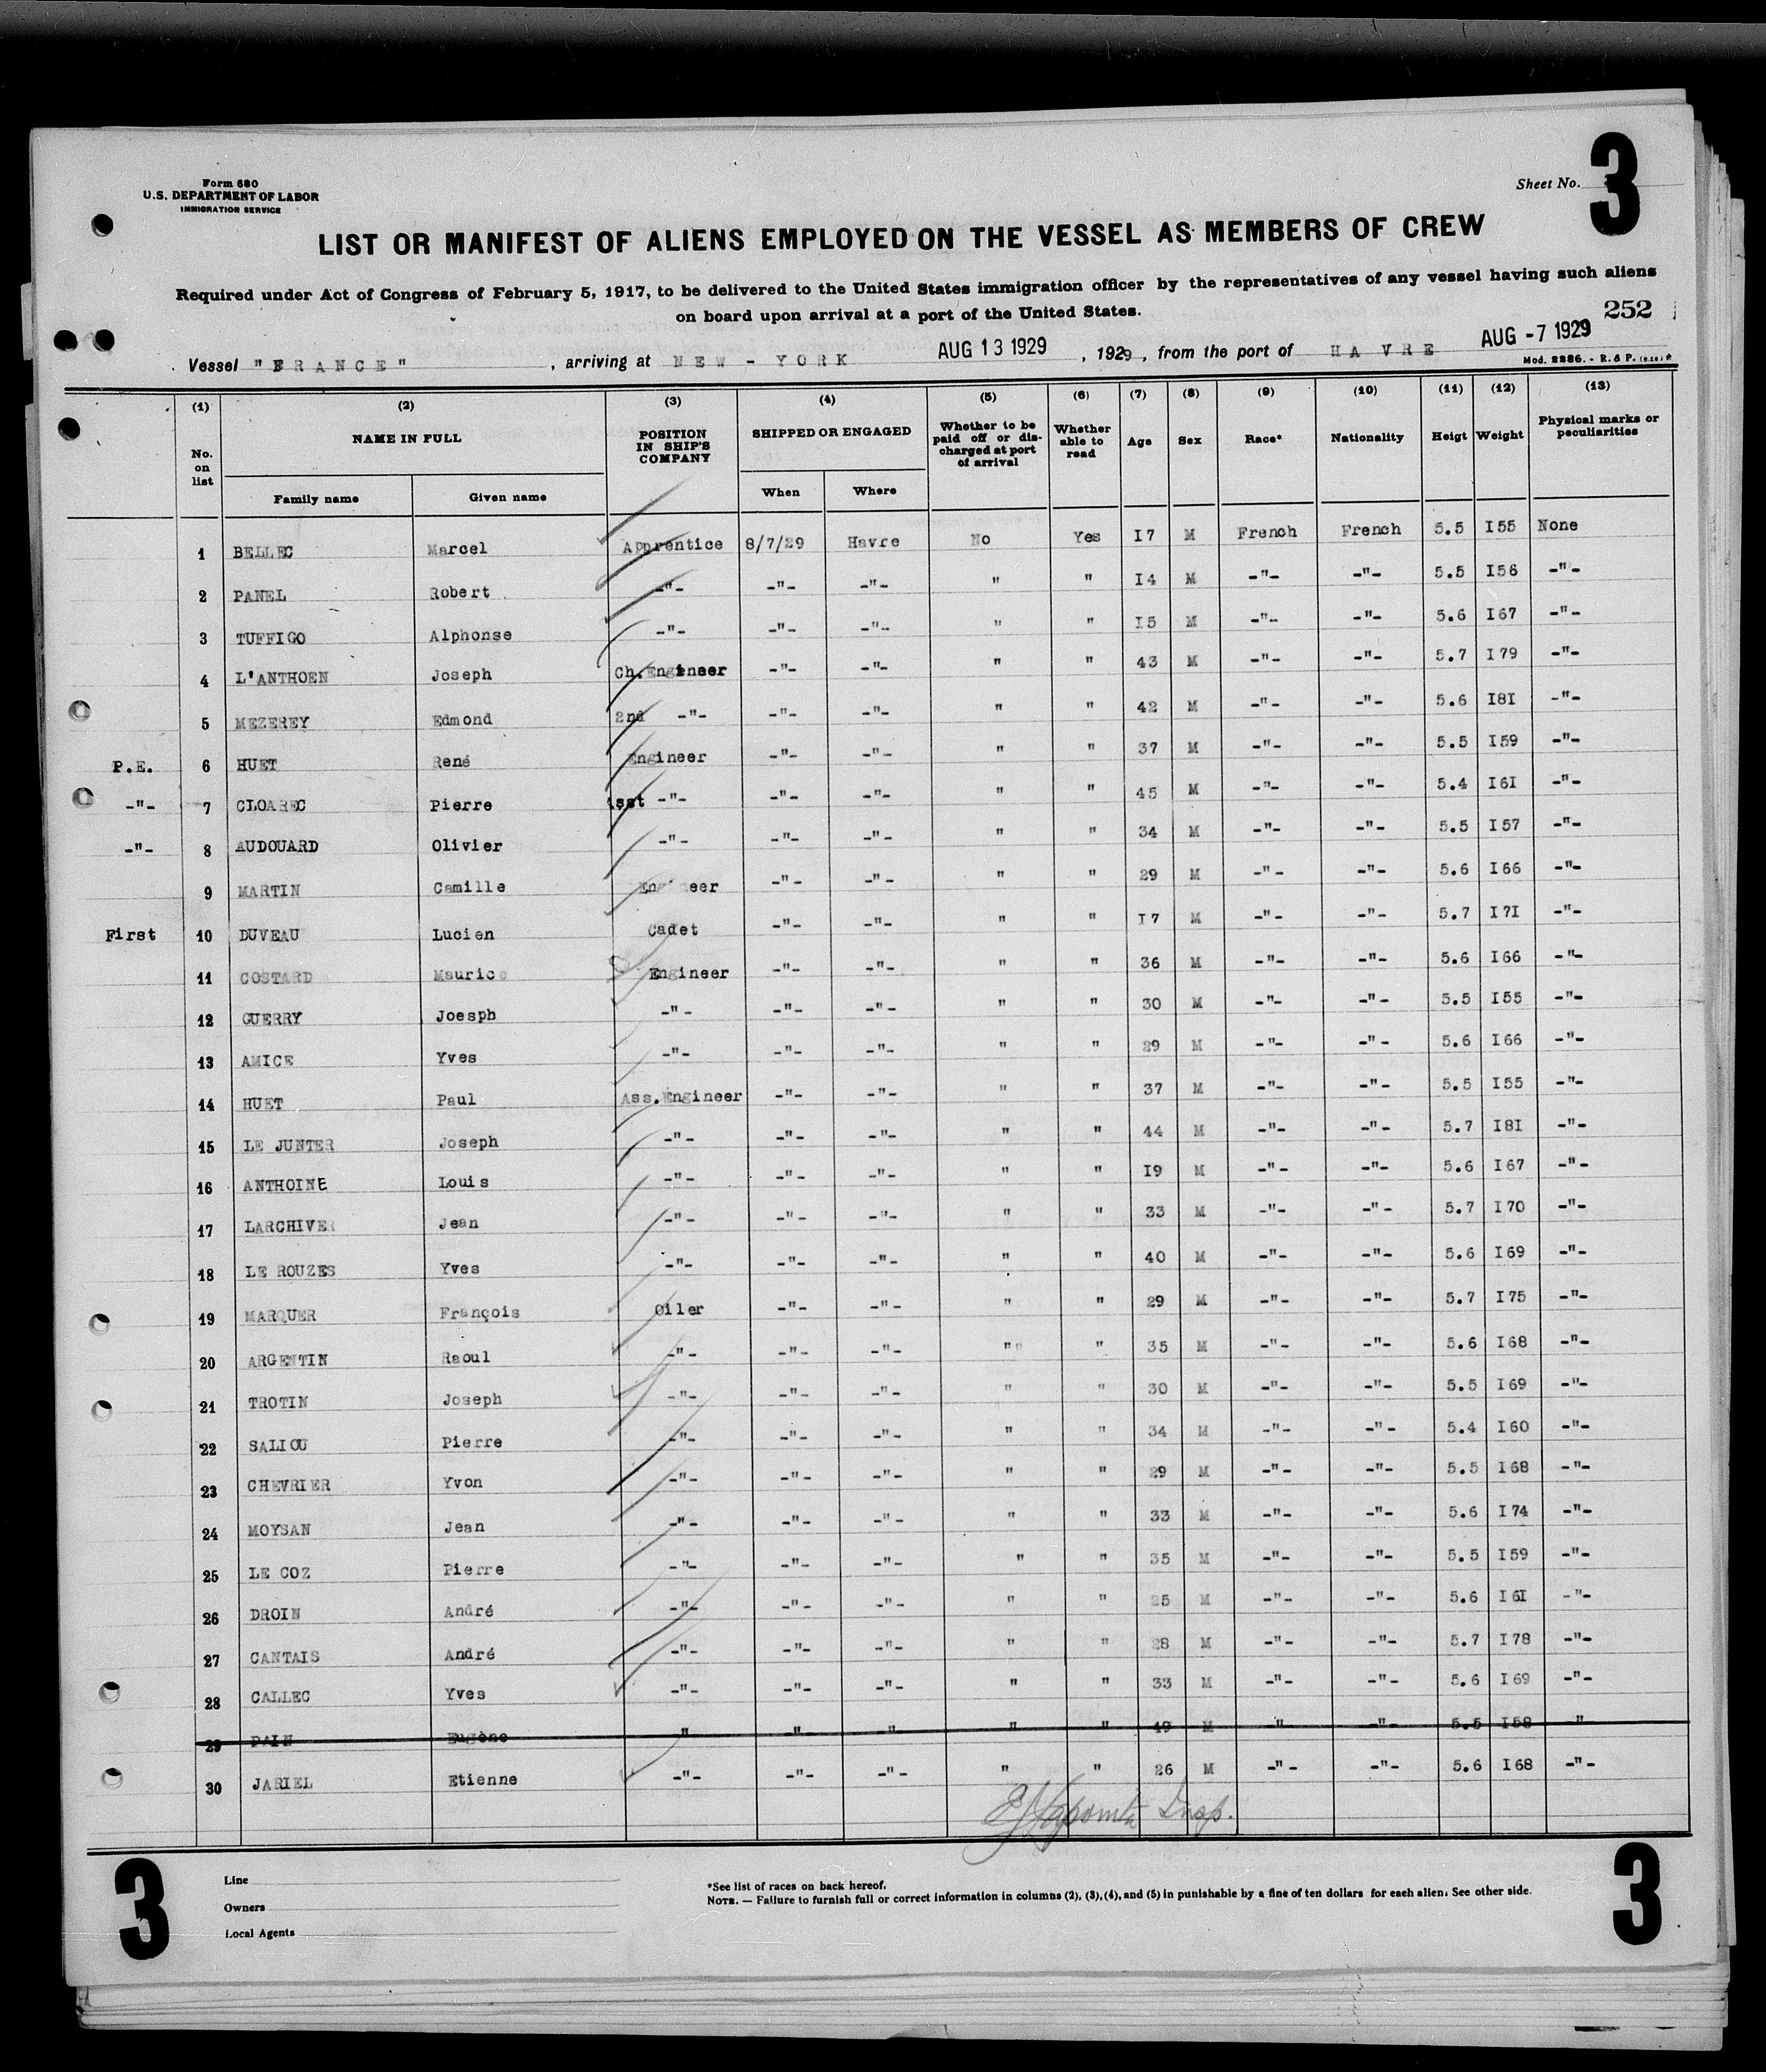 Form 680
U.S. DEPARTMENT OF LABOR
IMMIGRATION SERVICE
Sheet No. 3
LIST OR MANIFEST OF ALIENS EMPLOYED ON THE VESSEL AS MEMBERS OF CREW
Required under Act of Congress of February 5, 1917, to be delivered to the United States immigration officer by the representatives of any vessel having such aliens
on board upon arrival at a port of the United States.
252
Vessel "FRANCE", arriving at NEW-YORK AUG 13 1929, 1929, from the port of HAVRE AUG -7 1929
Mod. 2286. - R. & P.
(1) (2) (3) (4) (5) (6) (7) (8) (9) (10) (11) (12) (13)
No. on list NAME IN FULL POSITION IN SHIP'S COMPANY SHIPPED OR ENGAGED Whether to be paid off or discharged at port of arrival Whether able to read Age Sex Race* Nationality Heigt Weight Physical marks or peculiarities
Family name Given name When Where
1 BELLEC Marcel Apprentice 8/7/29 Havre No Yes I7 M French French 5.5 I55 None
2 PANEL Robert -"- -"- -"- " " I4 M -"- -"- 5.5 I56 -"-
3 TUFFIGO Alphonse -"- -"- -"- " " I5 M -"- -"- 5.6 I67 -"-
4 L'ANTHOEN Joseph Ch.Engineer -"- -"- " " 43 M -"- -"- 5.7 I79 -"-
5 MEZEREY Edmond 2nd -"- -"- -"- " " 42 M -"- -"- 5.6 I8I -"-
P.E. 6 HUET René Engineer -"- -"- " " 37 M -"- -"- 5.5 I59 -"-
-"- 7 CLOAREC Pierre -"- -"- -"- " " 45 M -"- -"- 5.4 I6I -"-
-"- 8 AUDOUARD Olivier -"- -"- -"- " " 34 M -"- -"- 5.5 I57 -"-
9 MARTIN Camille Engineer -"- -"- " " 29 M -"- -"- 5.6 I66 -"-
First 10 DUVEAU Lucien Cadet -"- -"- " " I7 M -"- -"- 5.7 I7I -"-
11 COSTARD Maurice Engineer -"- -"- " " 36 M -"- -"- 5.6 I66 -"-
12 GUERRY Joesph -"- -"- -"- " " 30 M -"- -"- 5.5 I55 -"-
13 AMICE Yves -"- -"- -"- " " 29 M -"- -"- 5.6 I66 -"-
14 HUET Paul Ass.Engineer -"- -"- " " 37 M -"- -"- 5.5 I55 -"-
15 LE JUNTER Joseph -"- -"- -"- " " 44 M -"- -"- 5.7 I8I -"-
16 ANTHOINE Louis -"- -"- -"- " " I9 M -"- -"- 5.6 I67 -"-
17 LARCHIVER Jean -"- -"- -"- " " 33 M -"- -"- 5.7 I70 -"-
18 LE ROUZES Yves -"- -"- -"- " " 40 M -"- -"- 5.6 I69 -"-
19 MARQUER François Oiler -"- -"- " " 29 M -"- -"- 5.7 I75 -"-
20 ARGENTIN Raoul -"- -"- -"- "" " 35 M -"- -"- 5.6 I68 -"-
21 TROTIN Joseph -"- -"- -"- " " 30 M -"- -"- 5.5 I69 -"-
22 SALIOU Pierre -"- -"- -"- " " 34 M -"- -"- 5.4 I60 -"-
23 CHEVRIER Yvon -"- -"- -"- " " 29 M -"- -"- 5.5 I68 -"-
24 MOYSAN Jean -"- -"- -"- " " 33 M -"- -"- 5.6 I74 -"-
25 LE COZ Pierre -"- -"- -"- " " 35 M -"- -"- 5.5 I59 -"-
26 DROIN André -"- -"- -"- " " 25 M -"- -"- 5.6 I6I -"-
27 CANTAIS André -"- -"- -"- " " 28 M -"- -"- 5.7 I78 -"-
28 CALLEC Yves -"- -"- -"- " " 33 M -"- -"- 5.6 I69 -"-
29 PAIN Eugène " -"- -"- " " 49 M -"- -"- 5.5 I58 "
30 JARIEL Etienne -"- -"- -"- " " 26 M -"- -"- 5.6 I68 -"-
Insp.
3
Line
Owners
Local Agents
*See list of races on back hereof.
NOTE. — Failure to furnish full or correct information in columns (2), (3), (4), and (5) in punishable by a fine of ten dollars for each alien. See other side.
3